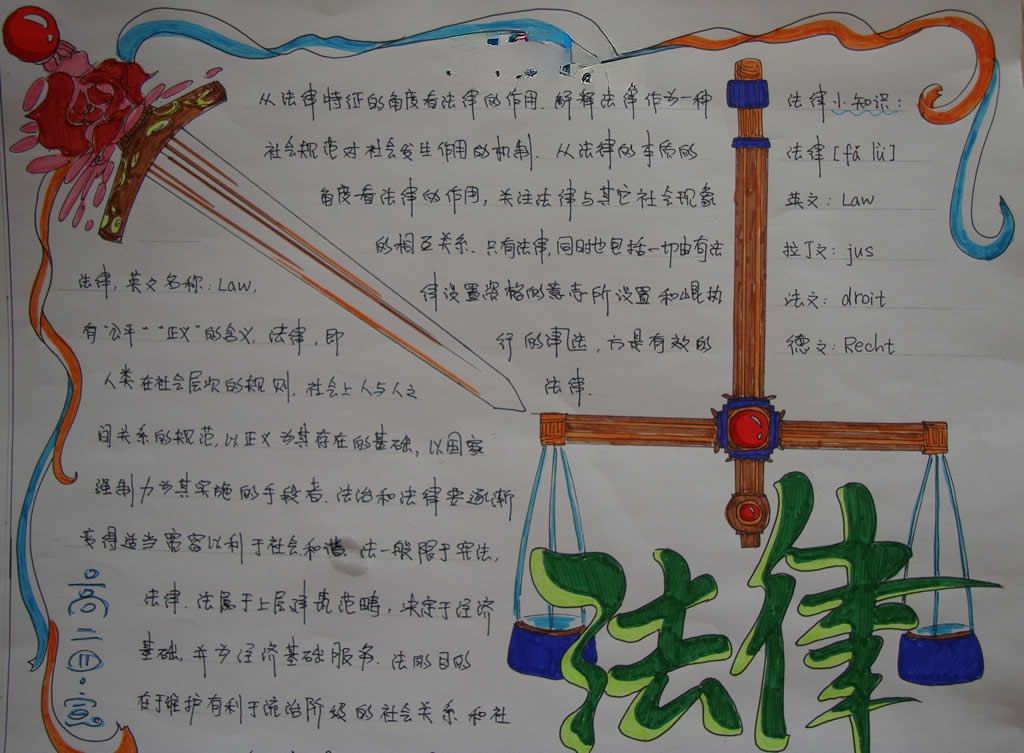 从法律特征的角度看法律的作用.解释法律作为一种
社会规范对社会发生作用的机制.从法律的本质的
角度看法律的作用,关注法律与其它社会现象
的相互关系.只有法律,同时也包括一切由有法
律设置资格的意志所设置和执
行的,方是有效的
法律.
法律小知识:
法律[fǎ lǜ]
英文:Law
拉丁文:jus
法文:droit
德文:Recht
法律,英文名称:Law,
有“公平”“正义”的含义,法律,即
人类在社会层次的规则,社会上人与人之
间关系的规范,以正义为其存在的基础,以国家
强制力为其实施的手段者.法治和法律要逐渐
变得适当宽容以利于社会和谐.法一般限于宪法,
法律.法属于上层建筑范畴,决定于经济
基础,并为经济基础服务.法的目的
在于维护有利于统治阶级的社会关系和社
法律
高二四.宣